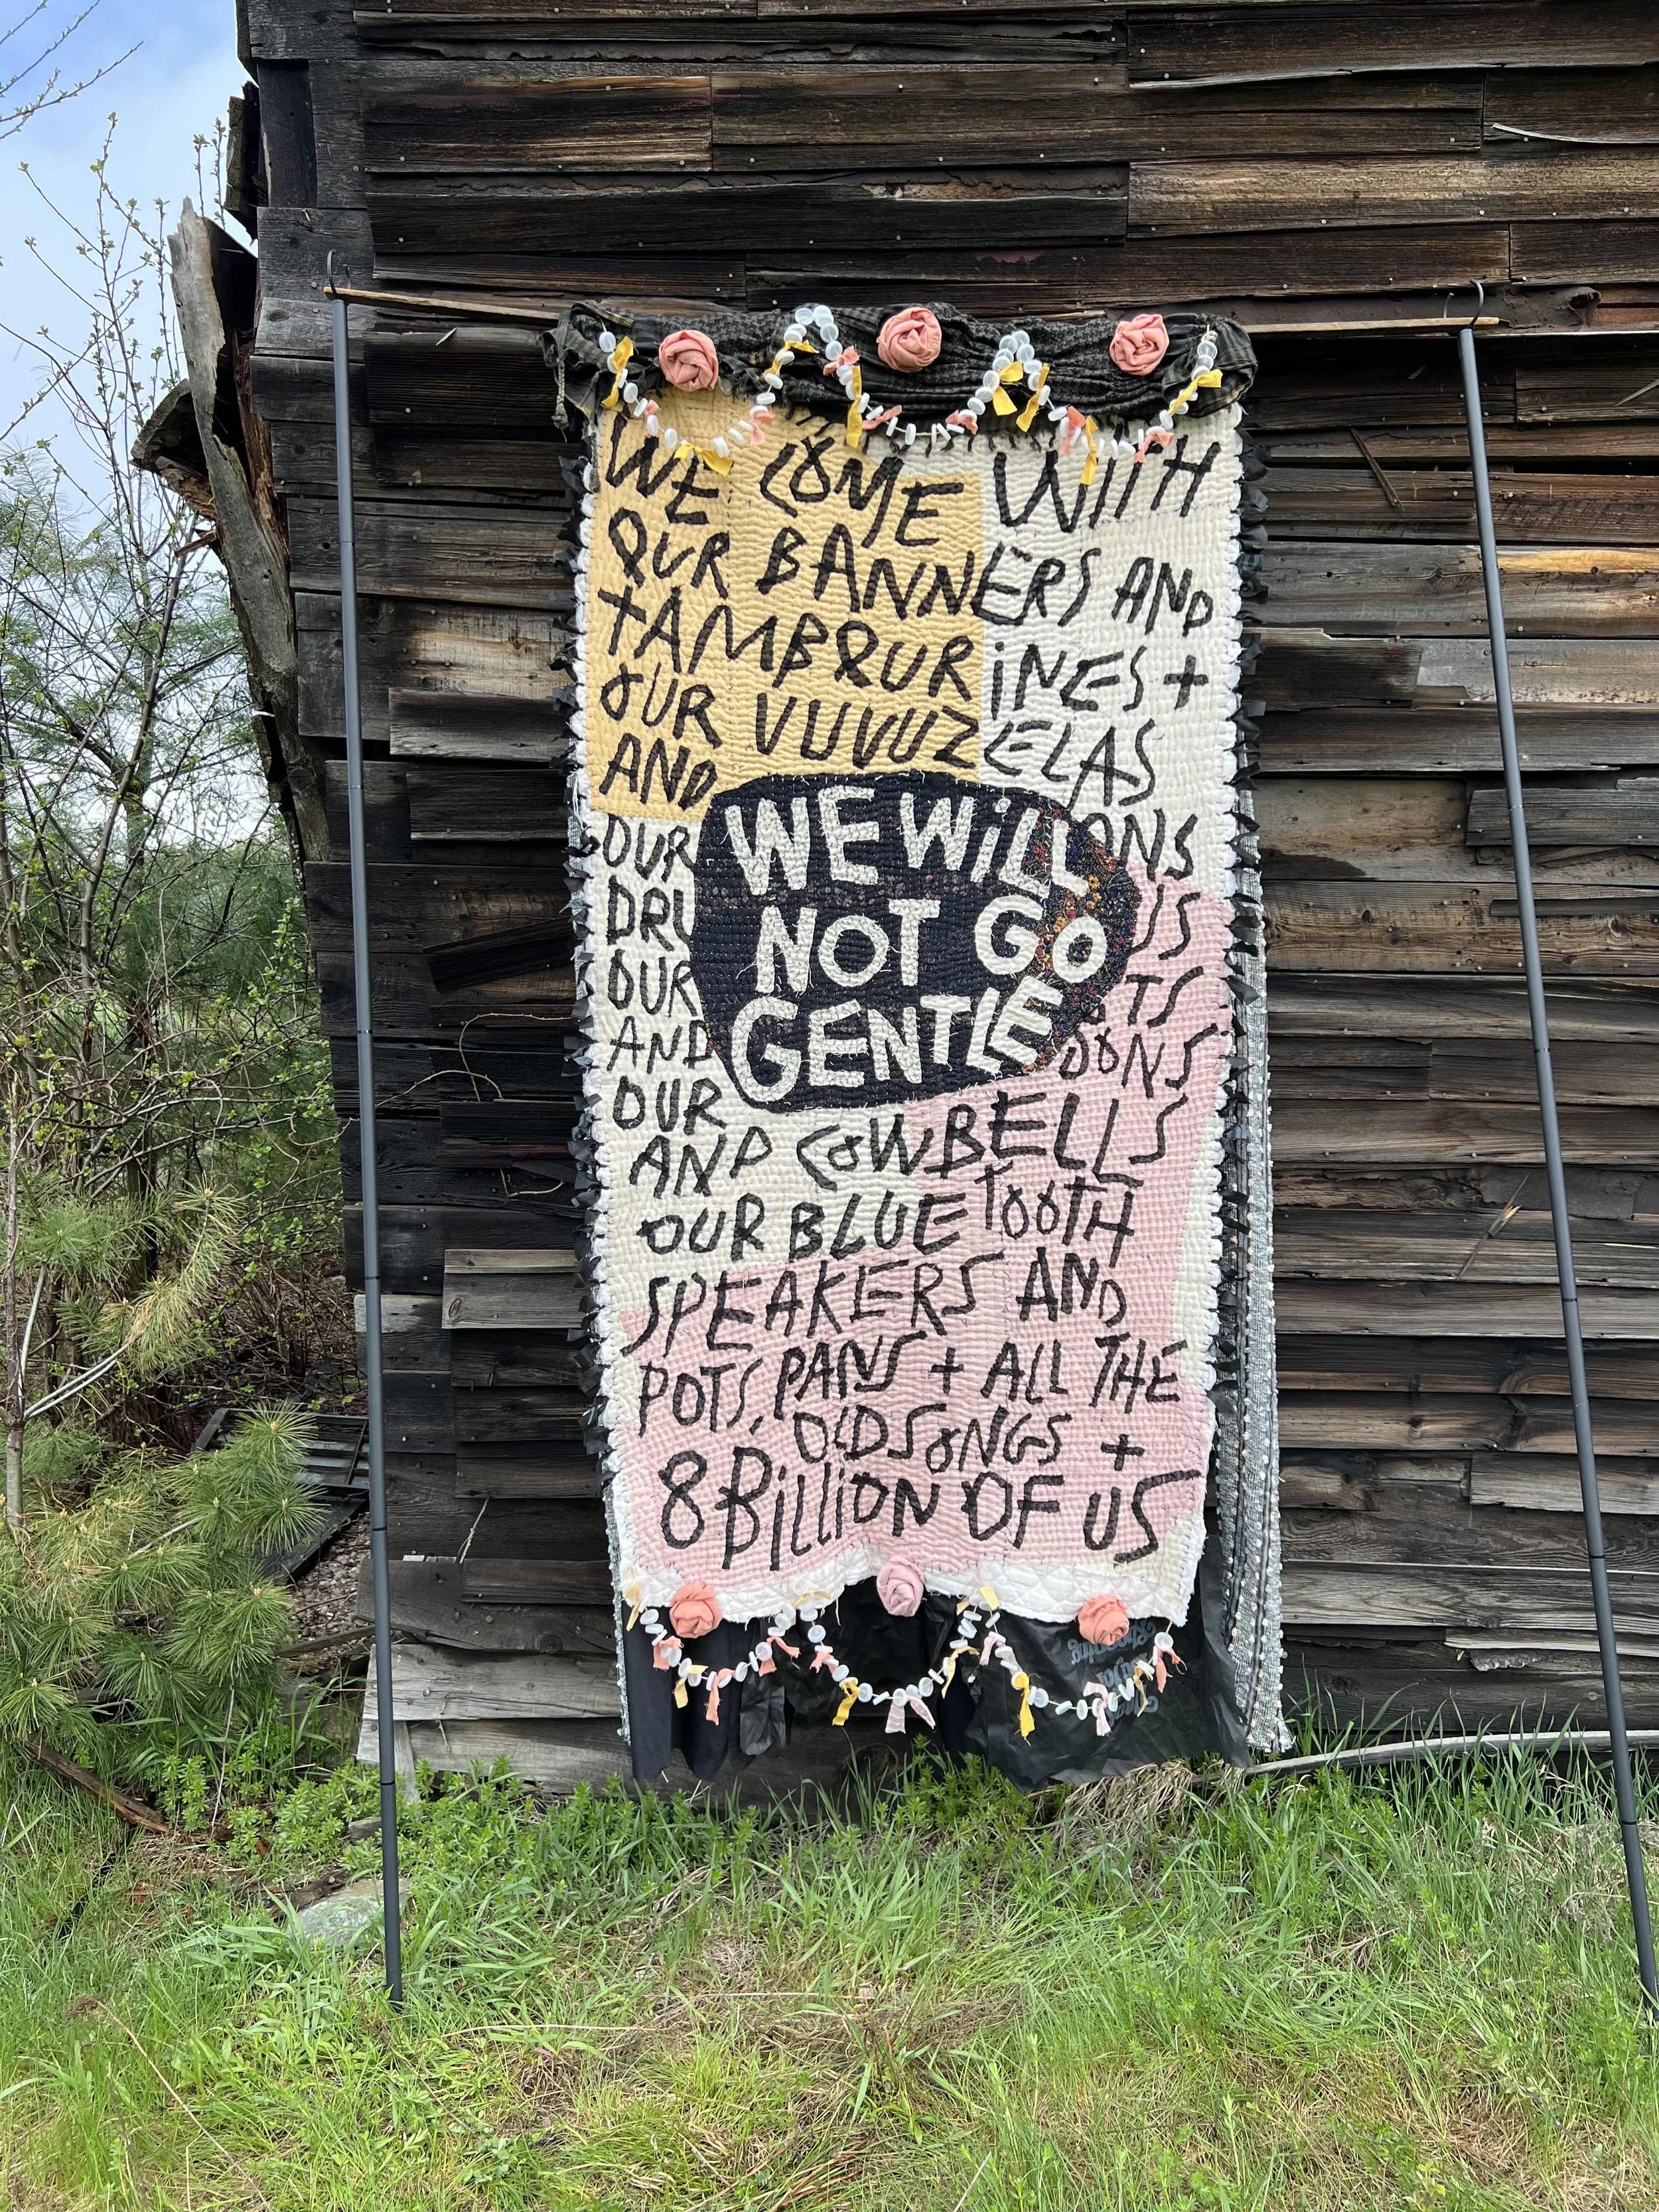 WE COME WITH
OUR BANNERS AND
TAMBOURINES +
OUR VUVUZELAS
AND
OUR
OUR
AND
OUR
WE WILL
NOT GO
GENTLE
AND COWBELLS
OUR BLUETOOTH
SPEAKERS AND
POTS, PANS + ALL THE
OLD SONGS +
8 BILLION OF US